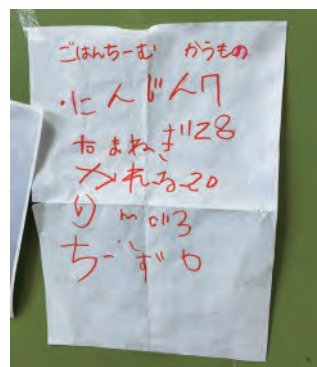 ごはんちーむ かうもの
・にんじん7
たまねぎ28
かれーる20
りんご3
ちーず6